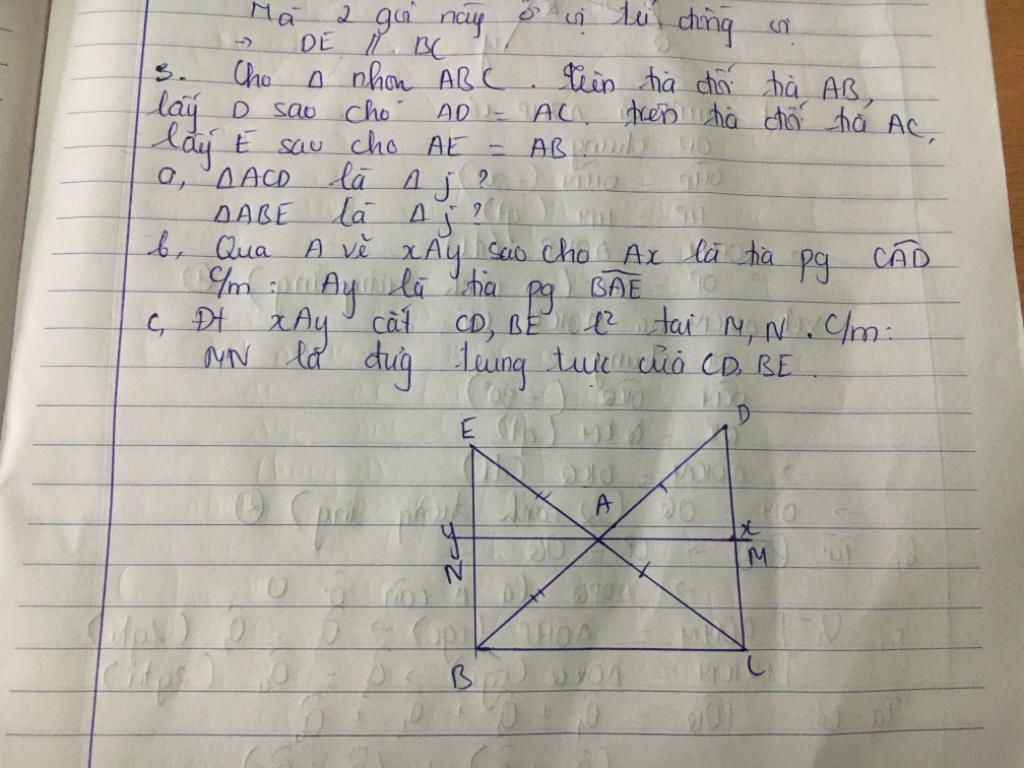 Mà 2 góc này ở vị trí đồng vị
→ DE // BC
3. Cho Δ nhọn ABC. Trên tia đối tia AB,
lấy D sao cho AD = AC. trên tia đối tia AC,
lấy E sao cho AE = AB.
a, ΔACD là Δ j ?
ΔABE là Δ j ?
b, Qua A vẽ xAy sao cho Ax là tia pg CAD
C/m : Ay là tia pg BAE
c, Đt xAy cắt CD, BE lần² tại M, N. C/m:
MN là đưg trung trực của CD, BE.
E
D
A
y
x
N
M
B
C